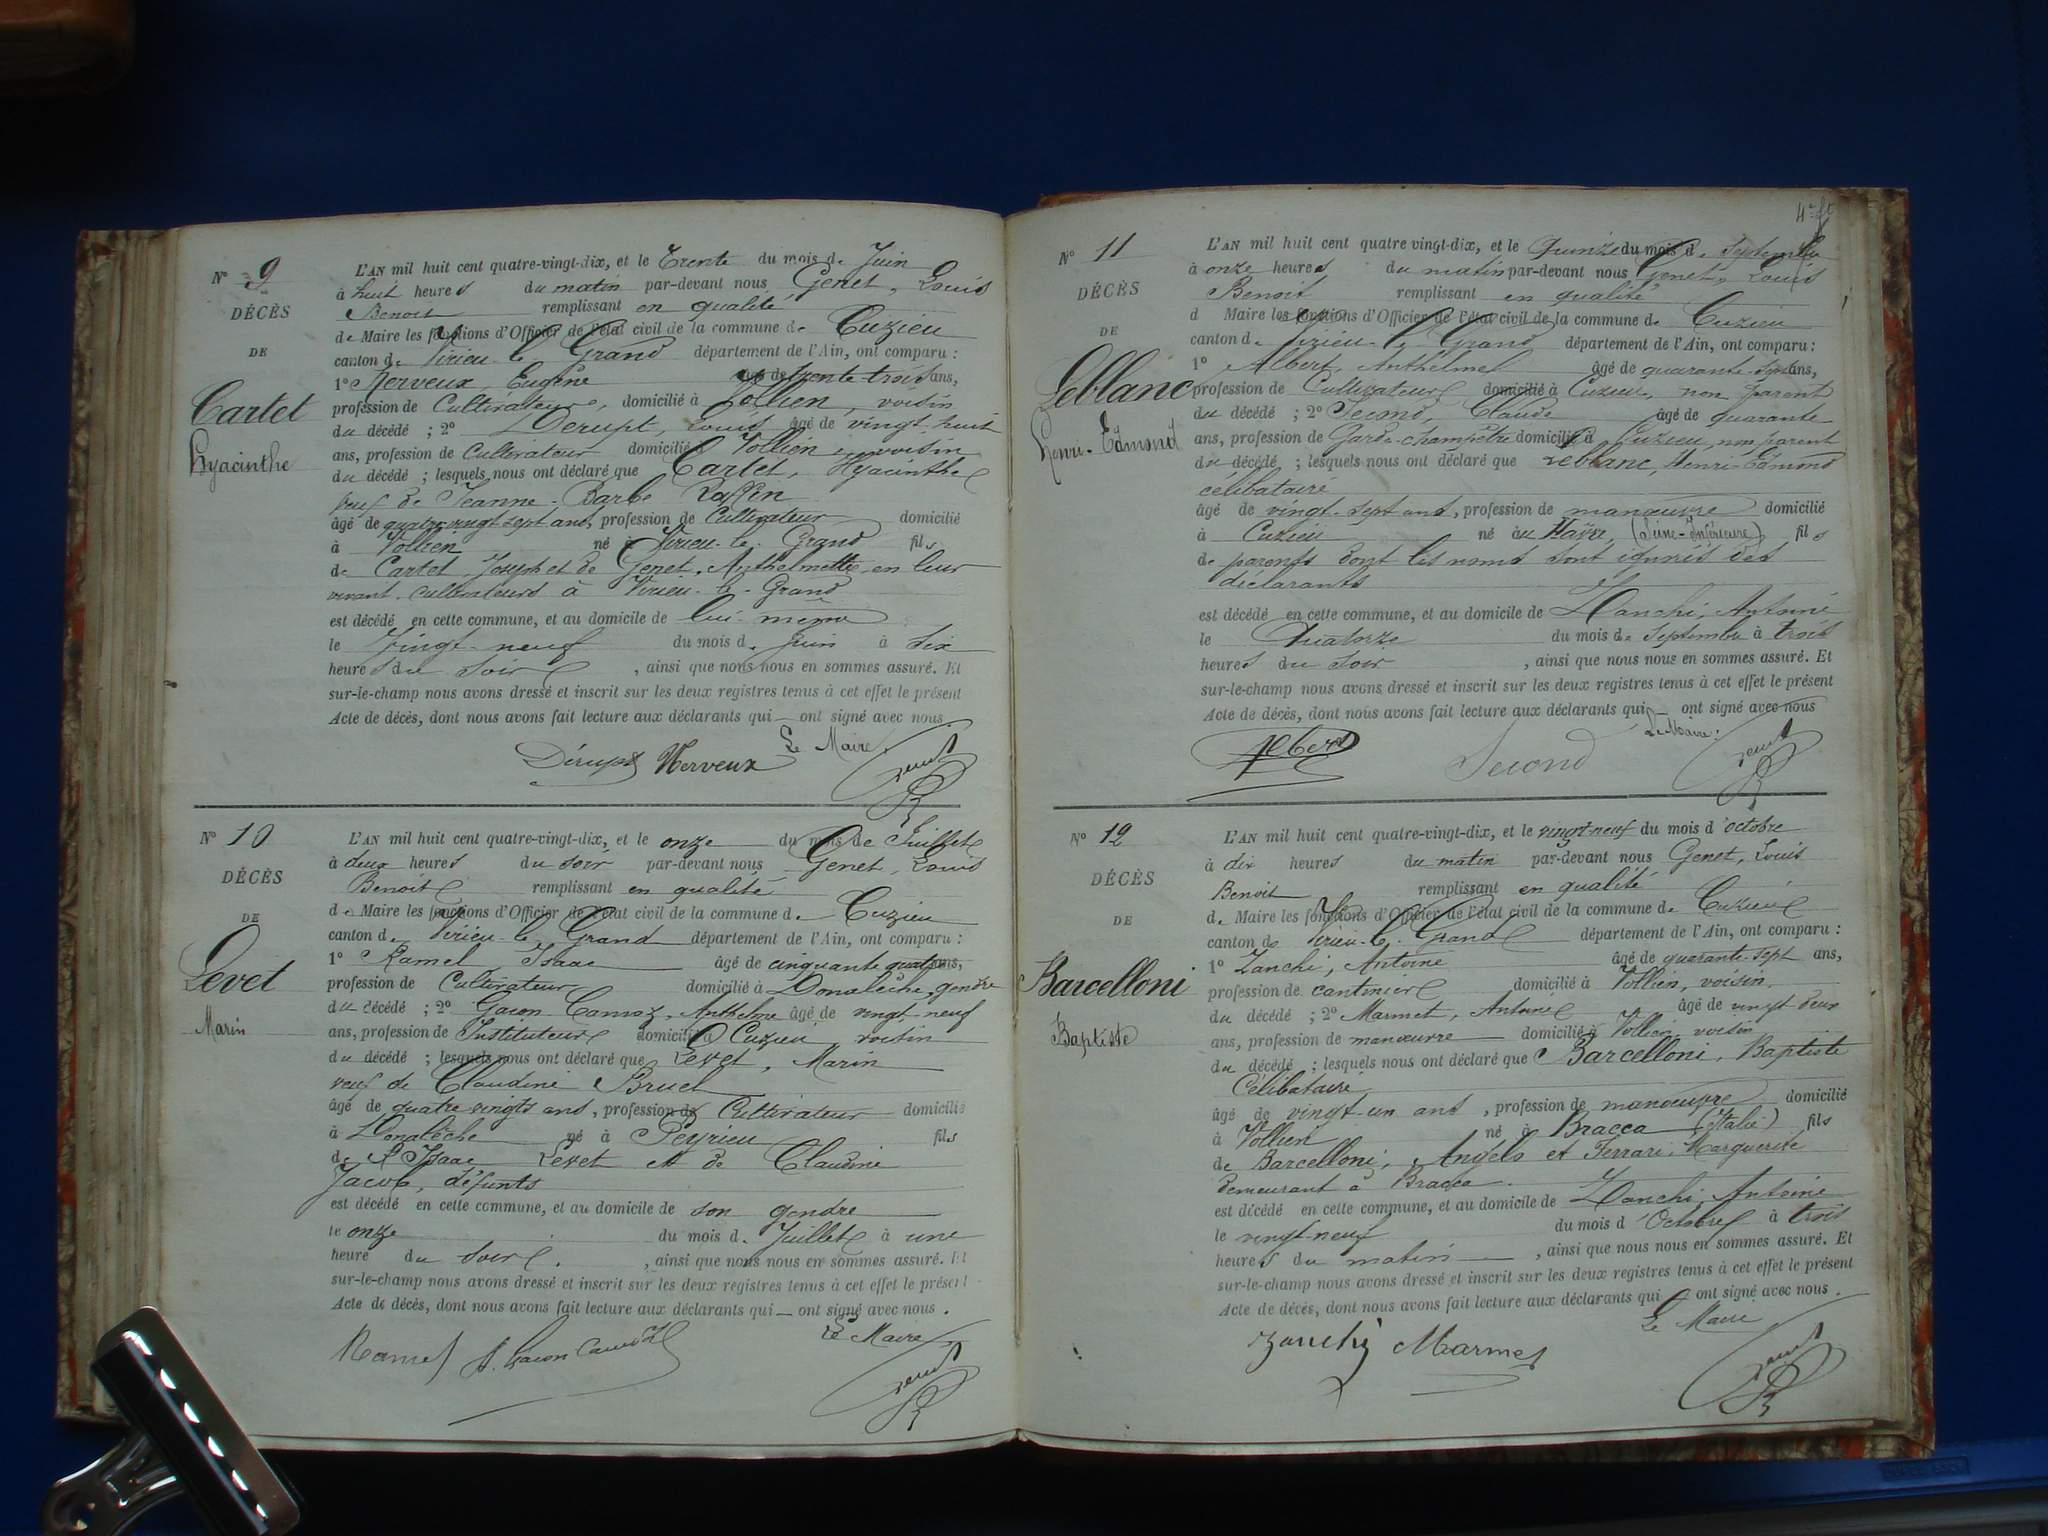 N° 9
DÉCÈS
DE
Cartet
Hyacinthe
L'AN mil huit cent quatre-vingt-dix, et le Trente du mois de Juin
à huit heures du matin par-devant nous Genet, Louis
Benoit remplissant en qualité
de Maire les fonctions d'Officier de l'état civil de la commune de Cuzieu
canton de Virieu-le-Grand département de l'Ain, ont comparu :
1° Nerveux, Eugène âgé de trente-trois ans,
profession de Cultivateur, domicilié à Vollien, voisin
du décédé ; 2° Derupt, Louis âgé de vingt-huit
ans, profession de Cultivateur domicilié à Vollien, voisin
du décédé ; lesquels nous ont déclaré que Cartet, Hyacinthe
veuf de Jeanne-Barbe
âgé de quatre-vingt-sept ans, profession de Cultivateur domicilié
à Vollien né à Virieu-le-Grand fils
de Cartet, Joseph et de Genet, Anthelmette en leur
vivant cultivateurs à Virieu-le-Grand
est décédé en cette commune, et au domicile de lui-même
le Vingt-neuf du mois de Juin à six
heures du soir, ainsi que nous nous en sommes assuré. Et
sur-le-champ nous avons dressé et inscrit sur les deux registres tenus à cet effet le présent
Acte de décès, dont nous avons fait lecture aux déclarants qui — ont signé avec nous.
Le Maire,
Dérupt Nerveux Genet
N° 10
DÉCÈS
DE
Levet
Marin
L'AN mil huit cent quatre-vingt-dix, et le onze du mois de Juillet
à deux heures du soir par-devant nous Genet, Louis
Benoit remplissant en qualité
de Maire les fonctions d'Officier de l'état civil de la commune de Cuzieu
canton de Virieu-le-Grand département de l'Ain, ont comparu :
1° Ramel, Isaac âgé de cinquante quatre ans,
profession de Cultivateur domicilié à Donalèche, gendre
du décédé ; 2° Gacon Camoz, Anthelme âgé de vingt-neuf
ans, profession de Instituteur domicilié à Cuzieu, voisin
du décédé ; lesquels nous ont déclaré que Levet, Marin
veuf de Claudine Bruel
âgé de quatre vingts ans, profession de Cultivateur domicilié
à Donalèche né à Peyrieu fils
de Isaac Levet et de Claudine
Jacob, défunts
est décédé en cette commune, et au domicile de son gendre
le onze du mois de Juillet à une
heure du soir, ainsi que nous nous en sommes assuré. Et
sur-le-champ nous avons dressé et inscrit sur les deux registres tenus à cet effet le présent
Acte de décès, dont nous avons fait lecture aux déclarants qui — ont signé avec nous.
Le Maire
Ramel A. Gacon Camoz Genet
4e
N° 11
DÉCÈS
DE
Leblanc
Henri-Edmond
L'AN mil huit cent quatre vingt-dix, et le Quinze du mois de Septembre
à onze heures du matin par-devant nous Genet, Louis
Benoit remplissant en qualité
d Maire les fonctions d'Officier de l'état civil de la commune de Cuzieu
canton de Virieu-le-Grand département de l'Ain, ont comparu :
1° Albert, Anthelme âgé de quarante-cinq ans,
profession de Cultivateur domicilié à Cuzieu, non parent
du décédé ; 2° Second, Claude âgé de quarante
ans, profession de Garde-champêtre domicilié à Cuzieu, non parent
du décédé ; lesquels nous ont déclaré que Leblanc, Henri-Edmond
célibataire
âgé de vingt-sept ans, profession de manœuvre domicilié
à Cuzieu né au Hâvre, (Seine-Inférieure) fils
de parents dont les noms sont ignorés des
déclarants
est décédé en cette commune, et au domicile de Zanchi, Antoine
le Quatorze du mois de Septembre à trois
heures du soir, ainsi que nous nous en sommes assuré. Et
sur-le-champ nous avons dressé et inscrit sur les deux registres tenus à cet effet le présent
Acte de décès, dont nous avons fait lecture aux déclarants qui — ont signé avec nous
Le Maire :
Albert Second Genet
N° 12
DÉCÈS
DE
Barcelloni
Baptiste
L'AN mil huit cent quatre-vingt-dix, et le vingt-neuf du mois d'octobre
à dix heures du matin par-devant nous Genet, Louis
Benoit remplissant en qualité
de Maire les fonctions d'Officier de l'état civil de la commune de Cuzieu
canton de Virieu-le-Grand département de l'Ain, ont comparu :
1° Zanchi, Antoine âgé de quarante-sept ans,
profession de cantinier domicilié à Vollien, voisin
du décédé ; 2° Marmet, Antoine âgé de vingt deux
ans, profession de manœuvre domicilié à Vollien, voisin
du décédé ; lesquels nous ont déclaré que Barcelloni, Baptiste
Célibataire
âgé de vingt-un ans, profession de manœuvre domicilié
à Vollien né à Bracca (Italie) fils
de Barcelloni, Angelo et Ferrari, Marguerite
demeurant à Bracca.
est décédé en cette commune, et au domicile de Zanchi, Antoine
le vingt-neuf du mois d'Octobre à trois
heures du matin, ainsi que nous nous en sommes assuré. Et
sur-le-champ nous avons dressé et inscrit sur les deux registres tenus à cet effet le présent
Acte de décès, dont nous avons fait lecture aux déclarants qui ont signé avec nous.
Le Maire
Zanchi Marmet Genet